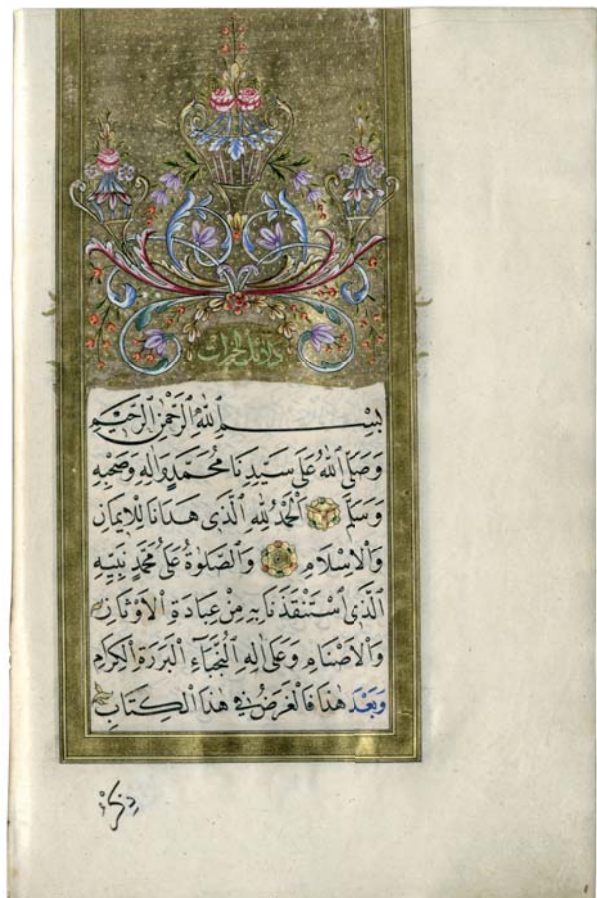 دلائل الخيرات
بِسْمِ ٱللّٰهِ ٱلرَّحْمٰنِ ٱلرَّحِيمِ
وَصَلَّى ٱللّٰهُ عَلٰى سَيِّدِنَا مُحَمَّدٍ وَاٰلِهِ وَصَحْبِهِ
وَسَلَّمَ اَلْحَمْدُ لِلّٰهِ ٱلَّذِى هَدَانَا لِلْاِيمَانِ
وَالْاِسْلَامِ وَالصَّلٰوةُ عَلٰى مُحَمَّدٍ نَبِيِّهِ
ٱلَّذِى ٱسْتَنْقَذَنَا بِهِ مِنْ عِبَادَةِ الْاَوْثَانِ
وَالْاَصْنَامِ وَعَلٰى اٰلِهِ ٱلنُّجَبَآءِ الْبَرَرَةِ الْكِرَامِ
وَبَعْدَ هٰذَا فَالْغَرَضُ فِى هٰذَا الْكِتَابِ
ذِكْرُ